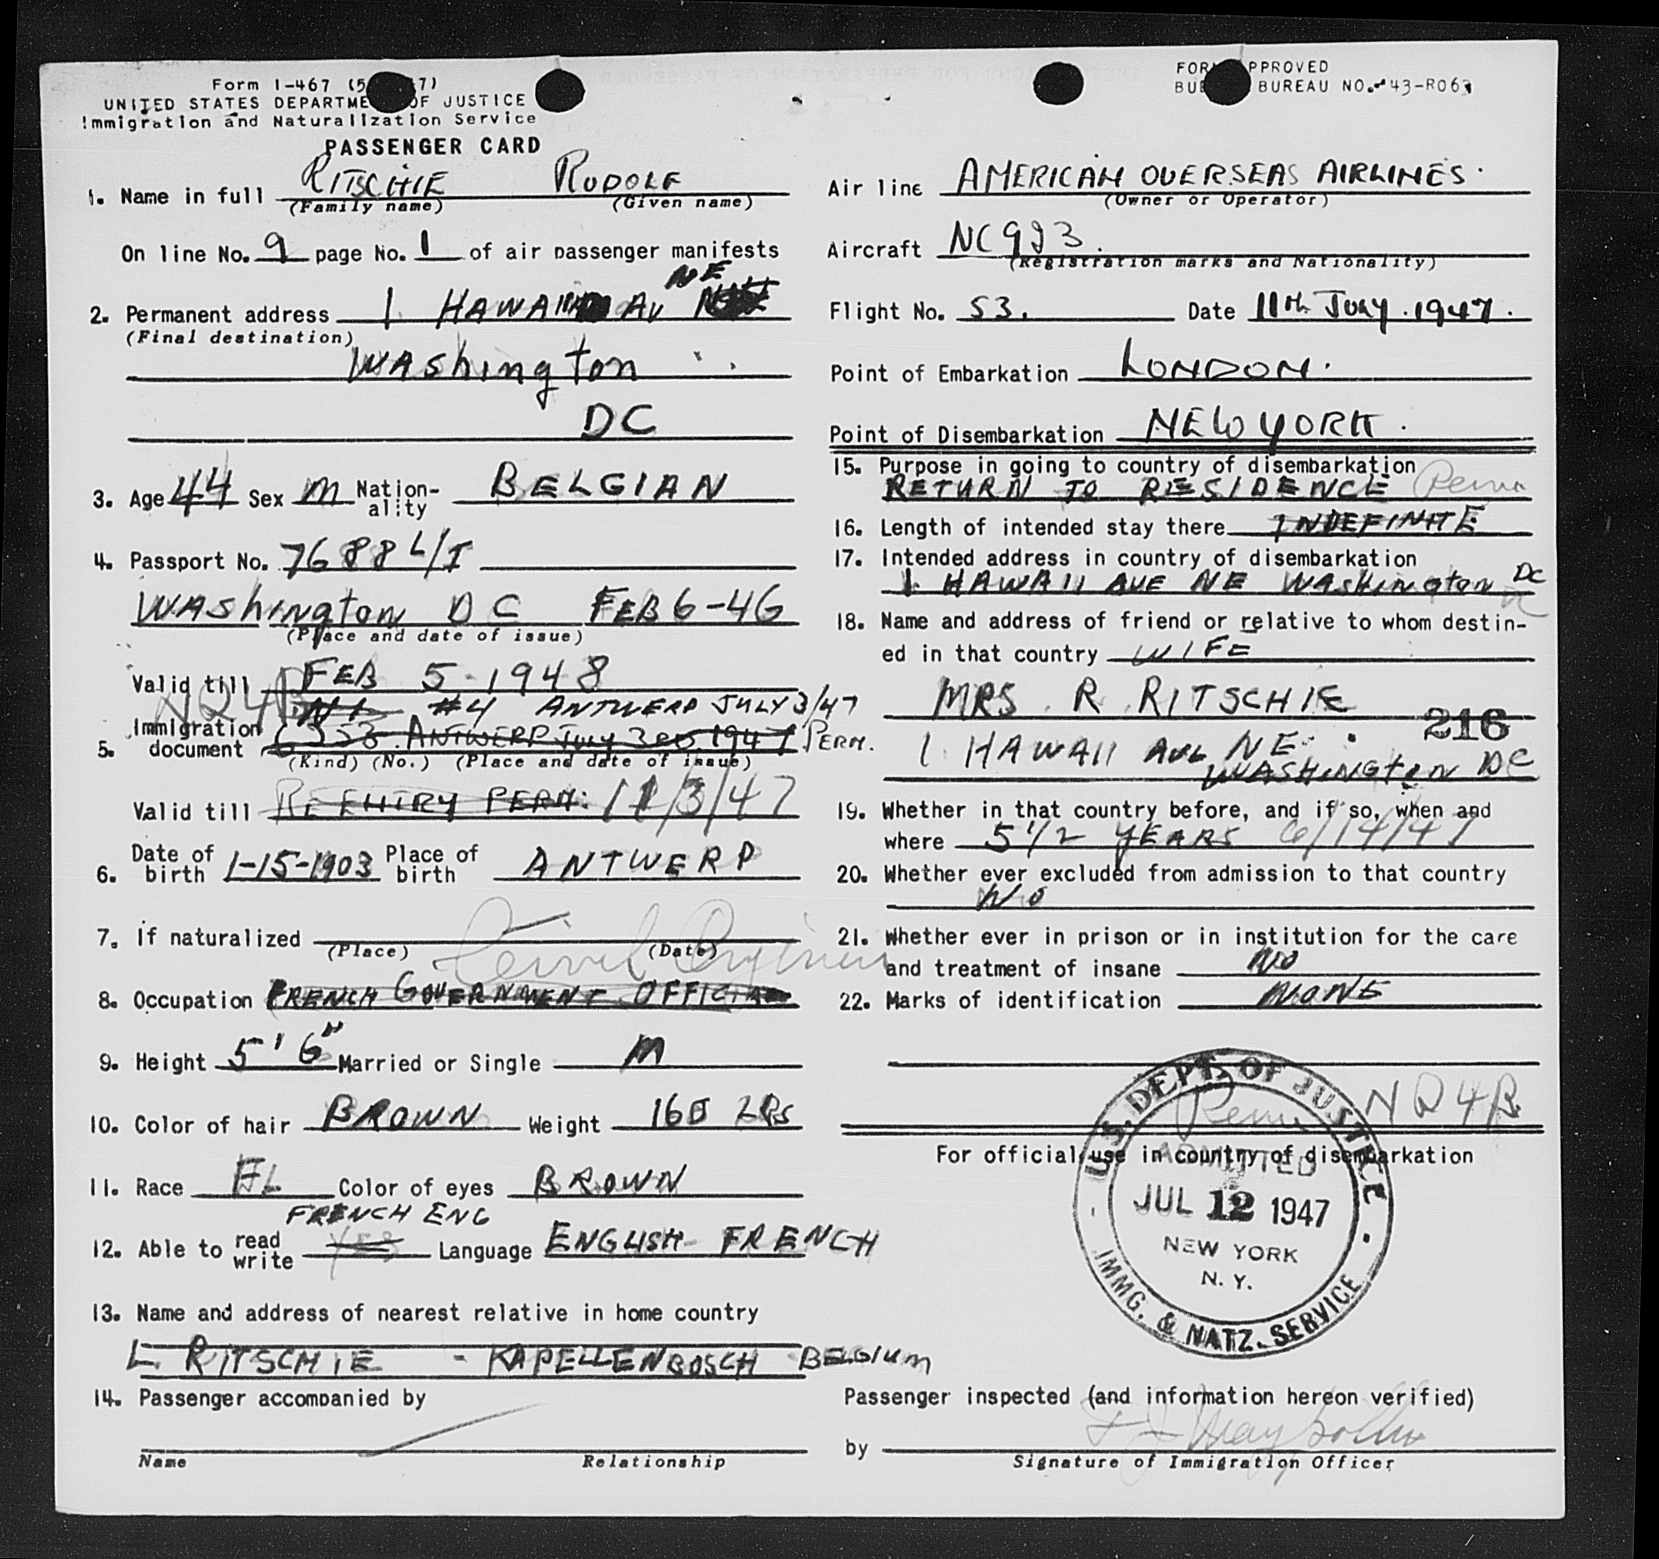 Form I-467 (5 7)
UNITED STATES DEPARTME OF JUSTICE
Immigration and Naturalization Service
PASSENGER CARD
1. Name in full RITSCHIE RUDOLF
(Family name) (Given name)
On line No. 9 page No. 1 of air passenger manifests
NE
2. Permanent address 1 HAWAII AV
(Final destination)
Washington
DC
3. Age 44 Sex M Nation-ality BELGIAN
4. Passport No. 7688 L/I
Washington DC FEB 6-46
(Place and date of issue)
Valid till FEB 5-1948
NQ4B #4 ANTWERP JULY 3/47
5. Immigration document ANTWERP July 3RD 1947 PERM.
(Kind) (No.) (Place and date of issue)
Valid till RE ENTRY PERM: 11/3/47
6. Date of birth 1-15-1903 Place of birth ANTWERP
7. If naturalized
(Place) (Date)
Civil Engineer
8. Occupation FRENCH GOVERNMENT OFFICIAL
9. Height 5'6" Married or Single M
10. Color of hair BROWN Weight 160 LBS
11. Race FL Color of eyes BROWN
FRENCH ENG
12. Able to read write YES Language ENGLISH - FRENCH
13. Name and address of nearest relative in home country
L. RITSCHIE - KAPELLENBOSCH BELGIUM
14. Passenger accompanied by
Name Relationship
FORM PPROVED
BU BUREAU NO. 43-R063
Air line AMERICAN OVERSEAS AIRLINES.
(Owner or Operator)
Aircraft NC993.
(Registration marks and Nationality)
Flight No. 53. Date 11th July. 1947.
Point of Embarkation LONDON.
Point of Disembarkation NEW YORK.
15. Purpose in going to country of disembarkation
RETURN TO RESIDENCE Perm
16. Length of intended stay there INDEFINITE
17. Intended address in country of disembarkation
1. HAWAII AVE NE Washington DC
18. Name and address of friend or relative to whom destin-
ed in that country WIFE
MRS. R. RITSCHIE
216
1 HAWAII AVE NE.
WASHINGTON DC
19. Whether in that country before, and if so, when and
where 5 1/2 YEARS 6/14/47
20. Whether ever excluded from admission to that country
No
21. Whether ever in prison or in institution for the care
and treatment of insane NO
22. Marks of identification NONE
Perm NQ4B
For official use in country of disembarkation
U.S. DEPT. OF JUSTICE
ADMITTED
JUL 12 1947
NEW YORK
N. Y.
IMMG. & NATZ. SERVICE
Passenger inspected (and information hereon verified)
by
Signature of Immigration Officer